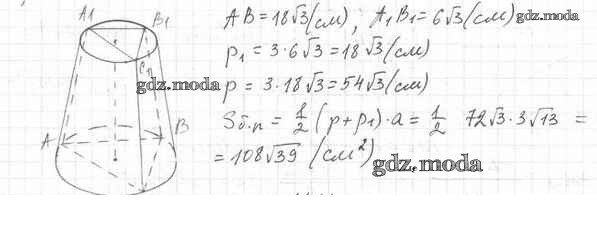 A1 B1 C1 A B
AB = 18√3 (см), A₁B₁ = 6√3 (см) gdz.moda
p₁ = 3·6√3 = 18√3 (см)
gdz.moda p = 3·18√3 = 54√3 (см)
Sб.п = 1/2 (p + p₁)·a = 1/2 72√3·3√13 =
= 108√39 (см²)
gdz.moda